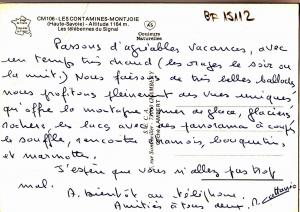 CM106 - LES CONTAMINES-MONTJOIE
(Haute-Savoie) - Altitude 1164 m.
Les télébennes du Signal
Couleurs
Naturelles
BF 15112
Passons d'agréables vacances, avec
un temps très chaud (les orages le soir ou
la nuit.) Nous faisons de très belles ballades
nous profitons pleinement des vues uniques
qu'offre la montagne : mer de glace, glaciers
rochers, les lacs avec des panorama à couper
le souffle, rencontre chamois, bouquetins
et marmottes.
J'espère que vous n'allez pas trop
mal.
A bientôt au téléphone.
Amitiés à tous deux.